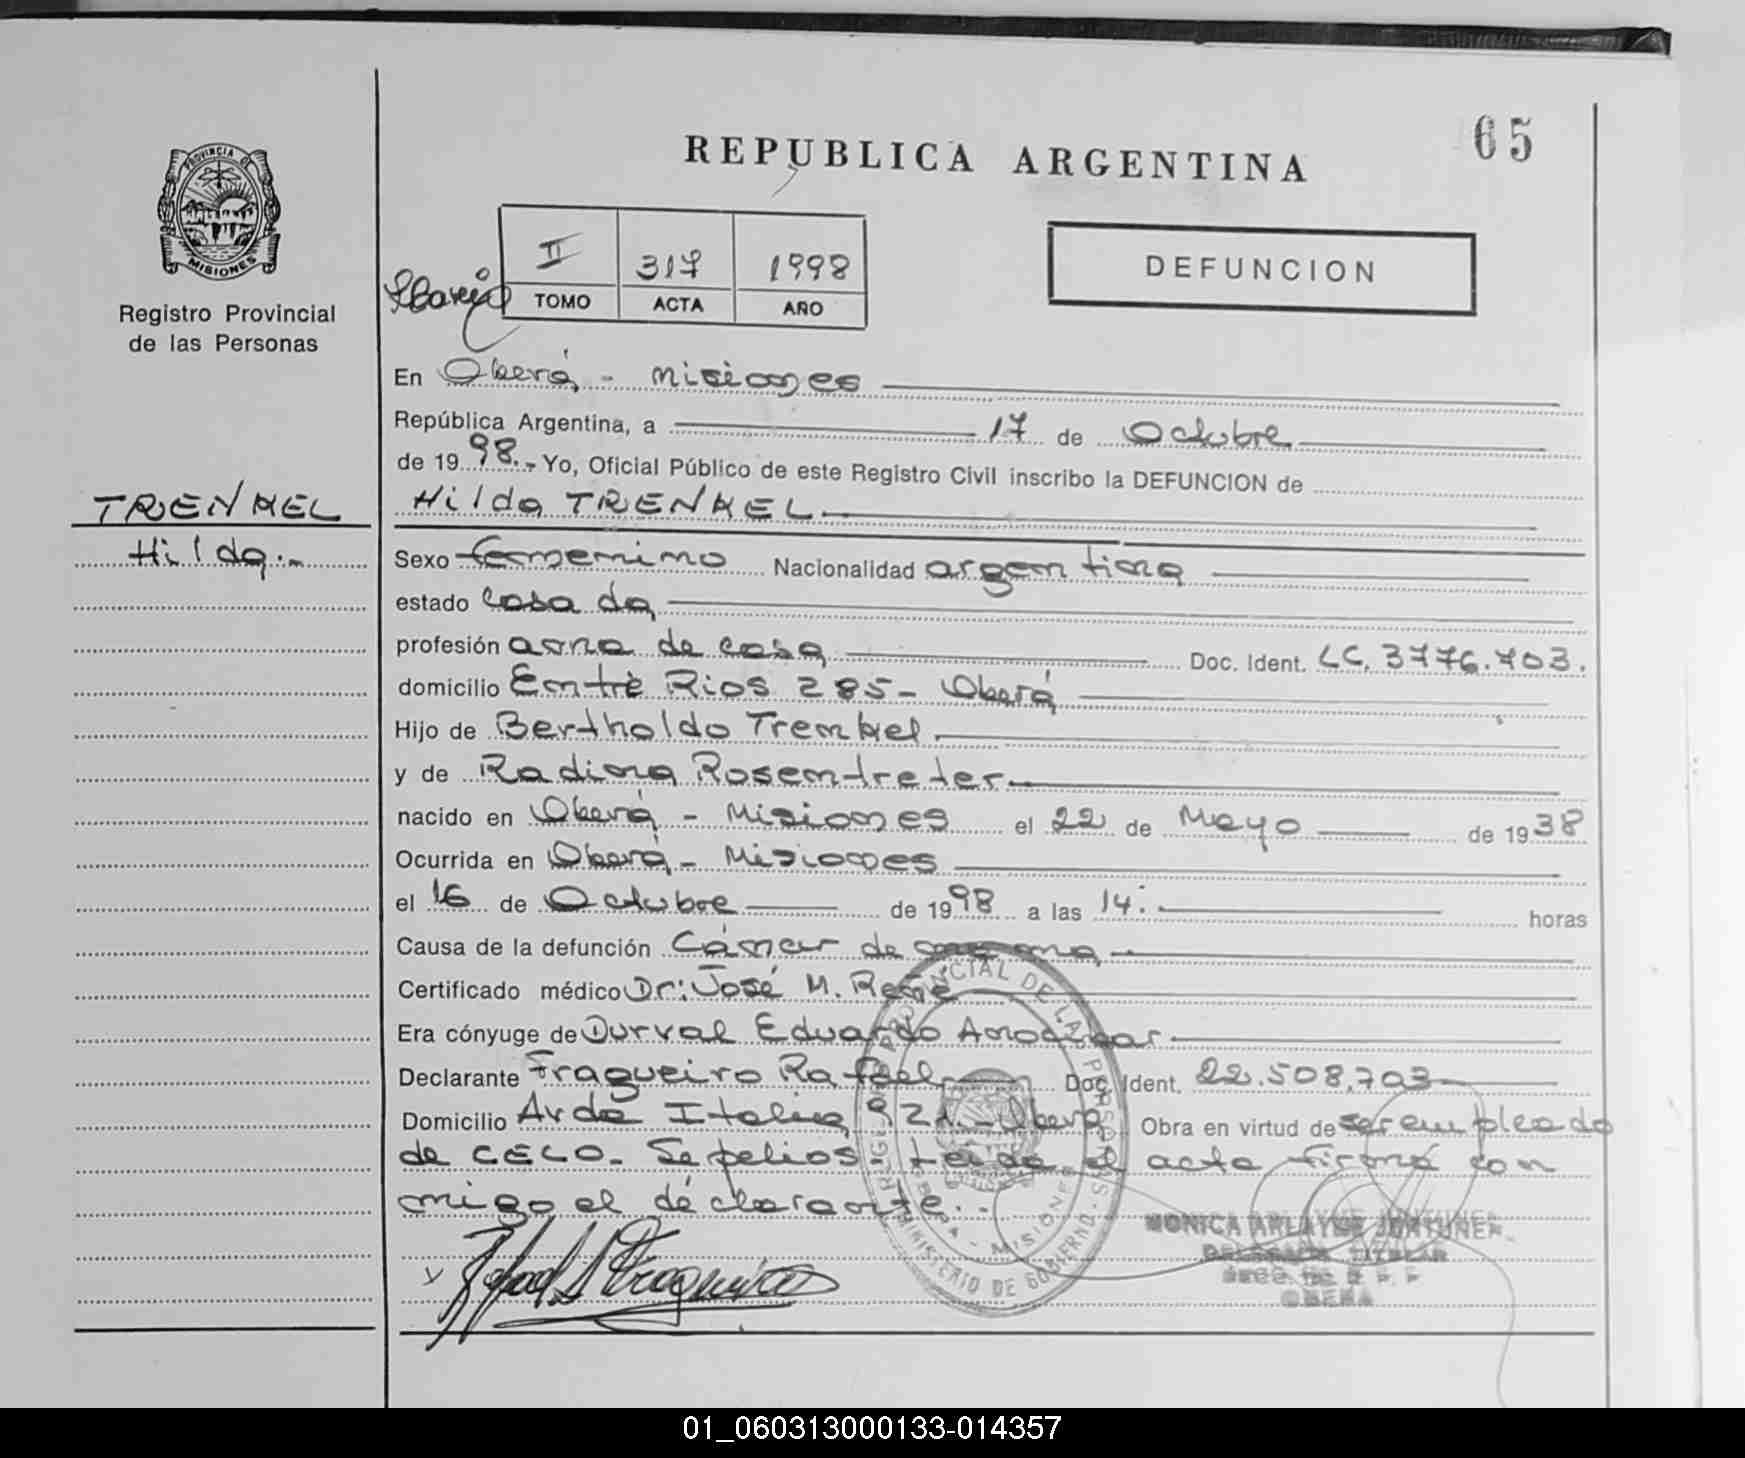 65
REPUBLICA ARGENTINA
PROVINCIA DE
MISIONES
Registro Provincial
de las Personas
II 317 1998
TOMO ACTA AÑO
DEFUNCION
En Oberá - Misiones
República Argentina, a 17 de Octubre
de 1998.- Yo, Oficial Público de este Registro Civil inscribo la DEFUNCION de
TRENKEL
Hilda.-
Hilda TRENKEL
Sexo femenino Nacionalidad argentina
estado casada
profesión ama de casa Doc. Ident. LC. 3776.703.
domicilio Entre Rios 285 - Oberá
Hijo de Bertholdo Trenkel
y de Radina Rosentreter
nacido en Oberá - Misiones el 22 de Mayo de 1938
Ocurrida en Oberá - Misiones
el 16 de Octubre de 1998 a las 14: horas
Causa de la defunción Cáncer de
Certificado médico Dr: José M. René
Era cónyuge de Durval Eduardo
Declarante Fragueiro Rafael Doc. Ident. 22.508.703
Domicilio Avda Italia Oberá Obra en virtud de ser empleado
de CELO - Sepelios - Leida el acta firma con
migo el déclarante..
MINISTERIO DE GOBIERNO
OBERA - MISIONES
DELEGADA TITULAR
OBERA
01_060313000133-014357